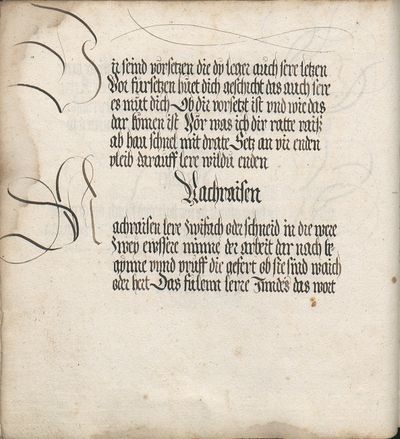 Vir seind vörsetzen die dÿ leger auch sere letzen
Vor fursetzen hüet dich geschicht das auch sere
es müt dich Ob dir vorsetzt ist vnd wie das
dar komen ist Hör was ich dir ratte raiß
ab hau schnel mit drate Setz an vir enden
pleib darauff lere wildu enden
Nachraisen
Nachraisen lere zwifach oder schneid in die were
Zwey eussere minne der arbeit dar nach be
gynne vnnd prüff die gefert ob sie sind waich
oder hert Das fulenn lerre Inndes das wort